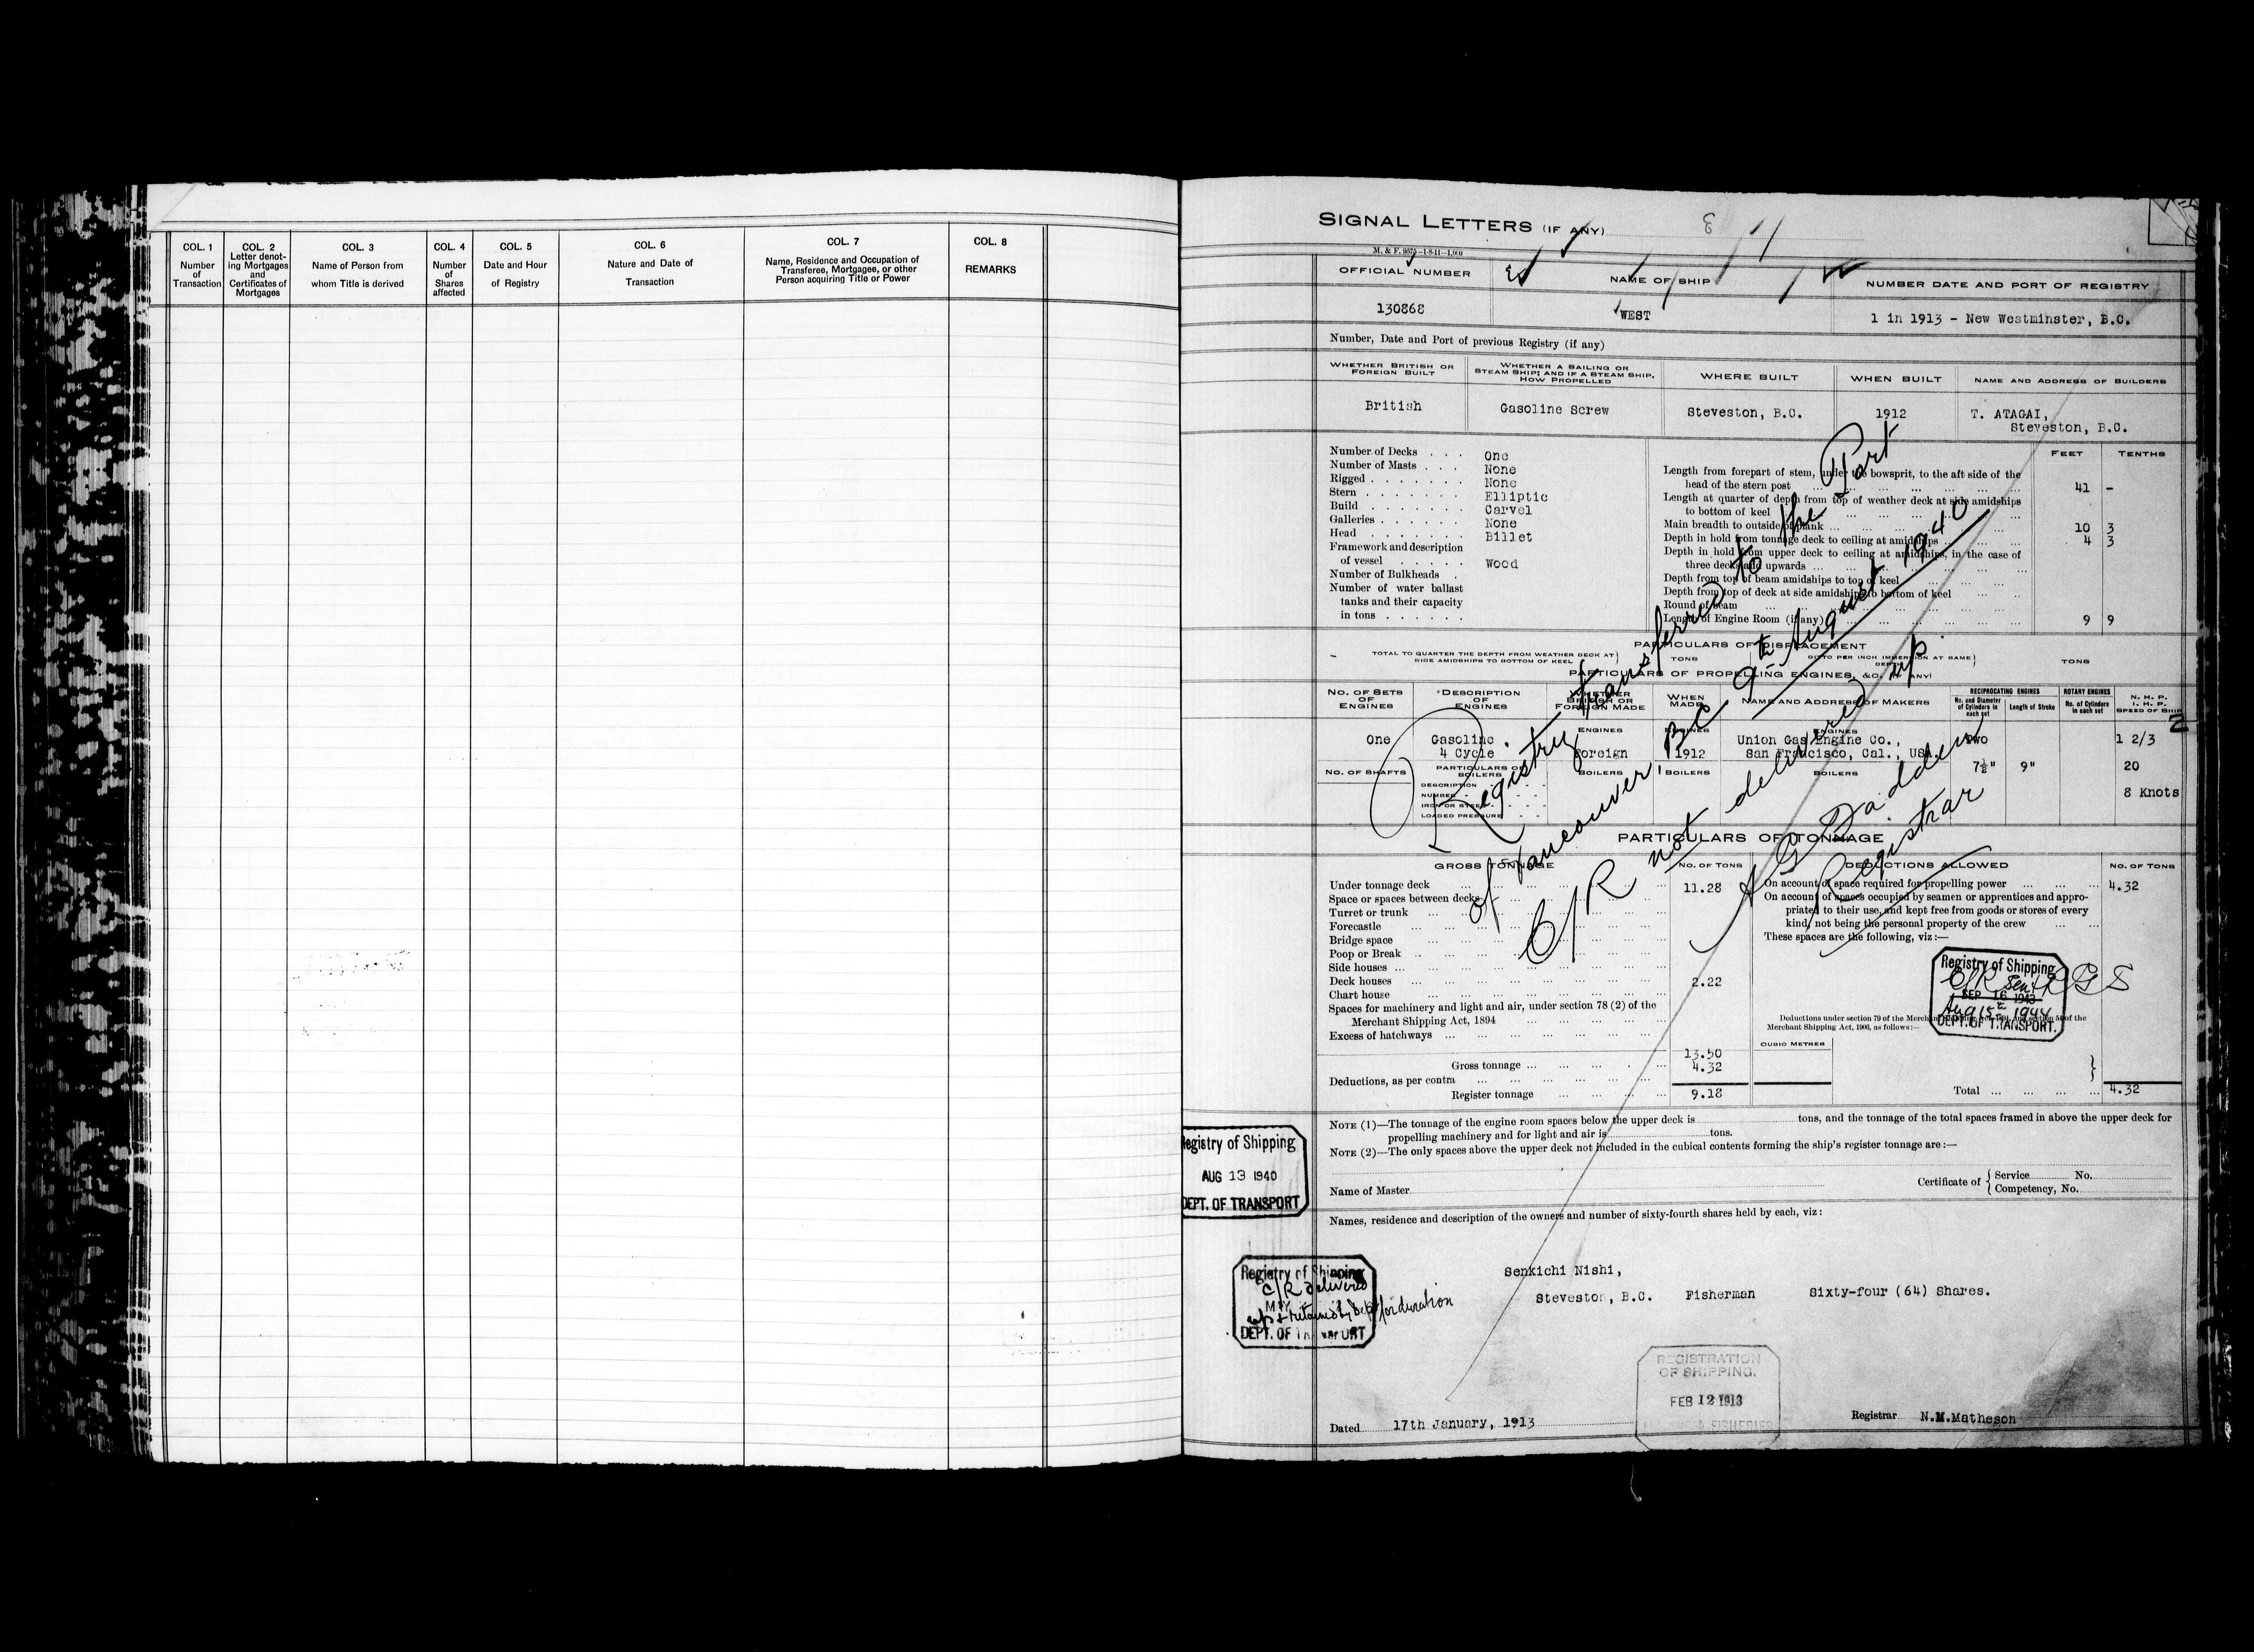 COL. 1
Number
of
Transaction
COL. 2
Letter denot-
ing Mortgages
and
Certificates of
Mortgages
COL. 3
Name of Person from
whom Title is derived
COL. 4
Number
of
Shares
affected
COL. 5
Date and Hour
of Registry
COL. 6
Nature and Date of
Transaction
COL. 7
Name, Residence and Occupation of
Transferee, Mortgagee, or other
Person acquiring Title or Power
COL. 8
REMARKS
SIGNAL LETTERS (IF ANY)
M. & F. 9575—1-8-11—1,000
OFFICIAL NUMBER
NAME OF SHIP
NUMBER DATE AND PORT OF REGISTRY
130868
WEST
1 in 1913 - New Westminster, B.C.
Number, Date and Port of previous Registry (if any)
WHETHER BRITISH OR
FOREIGN BUILT
WHETHER A SAILING OR
STEAM SHIP; AND IF A STEAM SHIP,
HOW PROPELLED
WHERE BUILT
WHEN BUILT
NAME AND ADDRESS OF BUILDERS
British
Gasoline Screw
Steveston, B.C.
1912
T. ATAGAI,
Steveston, B.C.
Number of Decks . . . One
Number of Masts . . . None
Rigged . . . . . . . None
Stern . . . . . . . Elliptic
Build . . . . . . . Carvel
Galleries . . . . . . None
Head . . . . . . . Billet
Framework and description
of vessel . . . . . Wood
Number of Bulkheads .
Number of water ballast
tanks and their capacity
in tons . . . . . .
FEET TENTHS
Length from forepart of stem, under the bowsprit, to the aft side of the
head of the stern post ... 41 -
Length at quarter of depth from top of weather deck at side amidships
to bottom of keel
Main breadth to outside of plank ... 10 3
Depth in hold from tonnage deck to ceiling at amidships ... 4 3
Depth in hold from upper deck to ceiling at amidships, in the case of
three decks and upwards ...
Depth from top of beam amidships to top of keel
Depth from top of deck at side amidships to bottom of keel
Round of beam
Length of Engine Room (if any) ... 9 9
PARTICULARS OF DISPLACEMENT
TOTAL TO QUARTER THE DEPTH FROM WEATHER DECK AT
SIDE AMIDSHIPS TO BOTTOM OF KEEL
TONS
DITTO PER INCH IMMERSION AT SAME
DEPTH
TONS
PARTICULARS OF PROPELLING ENGINES, &C. (IF ANY)
NO. OF SETS
OF
ENGINES
*DESCRIPTION
OF
ENGINES
WHETHER
BRITISH OR
FOREIGN MADE
WHEN
MADE
NAME AND ADDRESS OF MAKERS
RECIPROCATING ENGINES
No. and Diameter
of Cylinders in
each set
Length of Stroke
ROTARY ENGINES
No. of Cylinders
in each set
N. H. P.
I. H. P.
SPEED OF SHIP
2
One
Gasoline
4 Cycle
ENGINES
Foreign
ENGINES
1912
ENGINES
Union Gas Engine Co.,
San Francisco, Cal., USA.
Two
7½"
9"
1 2/3
20
8 Knots
NO. OF SHAFTS
PARTICULARS OF
BOILERS
BOILERS
BOILERS
BOILERS
DESCRIPTION
NUMBER
IRON OR STEEL
LOADED PRESSURE
Registry transferred to the Port
of Vancouver, B.C. 9th August 1940
C/R not delivered up.
Registrar
PARTICULARS OF TONNAGE
GROSS TONNAGE
NO. OF TONS
Under tonnage deck ... 11.28
Space or spaces between decks
Turret or trunk
Forecastle
Bridge space
Poop or Break
Side houses
Deck houses ... 2.22
Chart house
Spaces for machinery and light and air, under section 78 (2) of the
Merchant Shipping Act, 1894
Excess of hatchways
13.50
Gross tonnage ... 4.32
Deductions, as per contra
Register tonnage ... 9.18
DEDUCTIONS ALLOWED
NO. OF TONS
On account of space required for propelling power ... 4.32
On account of spaces occupied by seamen or apprentices and appro-
priated to their use, and kept free from goods or stores of every
kind, not being the personal property of the crew
These spaces are the following, viz:—
Registry of Shipping
C/R Sent RGS
SEP 16 1943
Aug 15th 1944
DEPT. OF TRANSPORT.
Deductions under section 79 of the Merchant Shipping Act, 1894, and section 54 of the
Merchant Shipping Act, 1906, as follows:—
CUBIC METRES
Total ... 4.32
NOTE (1)—The tonnage of the engine room spaces below the upper deck is tons, and the tonnage of the total spaces framed in above the upper deck for
propelling machinery and for light and air is tons.
NOTE (2)—The only spaces above the upper deck not included in the cubical contents forming the ship's register tonnage are:—
Registry of Shipping
AUG 13 1940
DEPT. OF TRANSPORT
Name of Master
Certificate of { Service No.
Competency, No.
Names, residence and description of the owners and number of sixty-fourth shares held by each, viz:
Senkichi Nishi,
Steveston, B.C. Fisherman Sixty-four (64) Shares.
Registry of Shipping
C/R delivered
MAY
up & retained by Dept for duration
DEPT. OF TRANSPORT
REGISTRATION
OF SHIPPING.
FEB 12 1913
& FISHERIES
Dated 17th January, 1913
Registrar N.M.Matheson